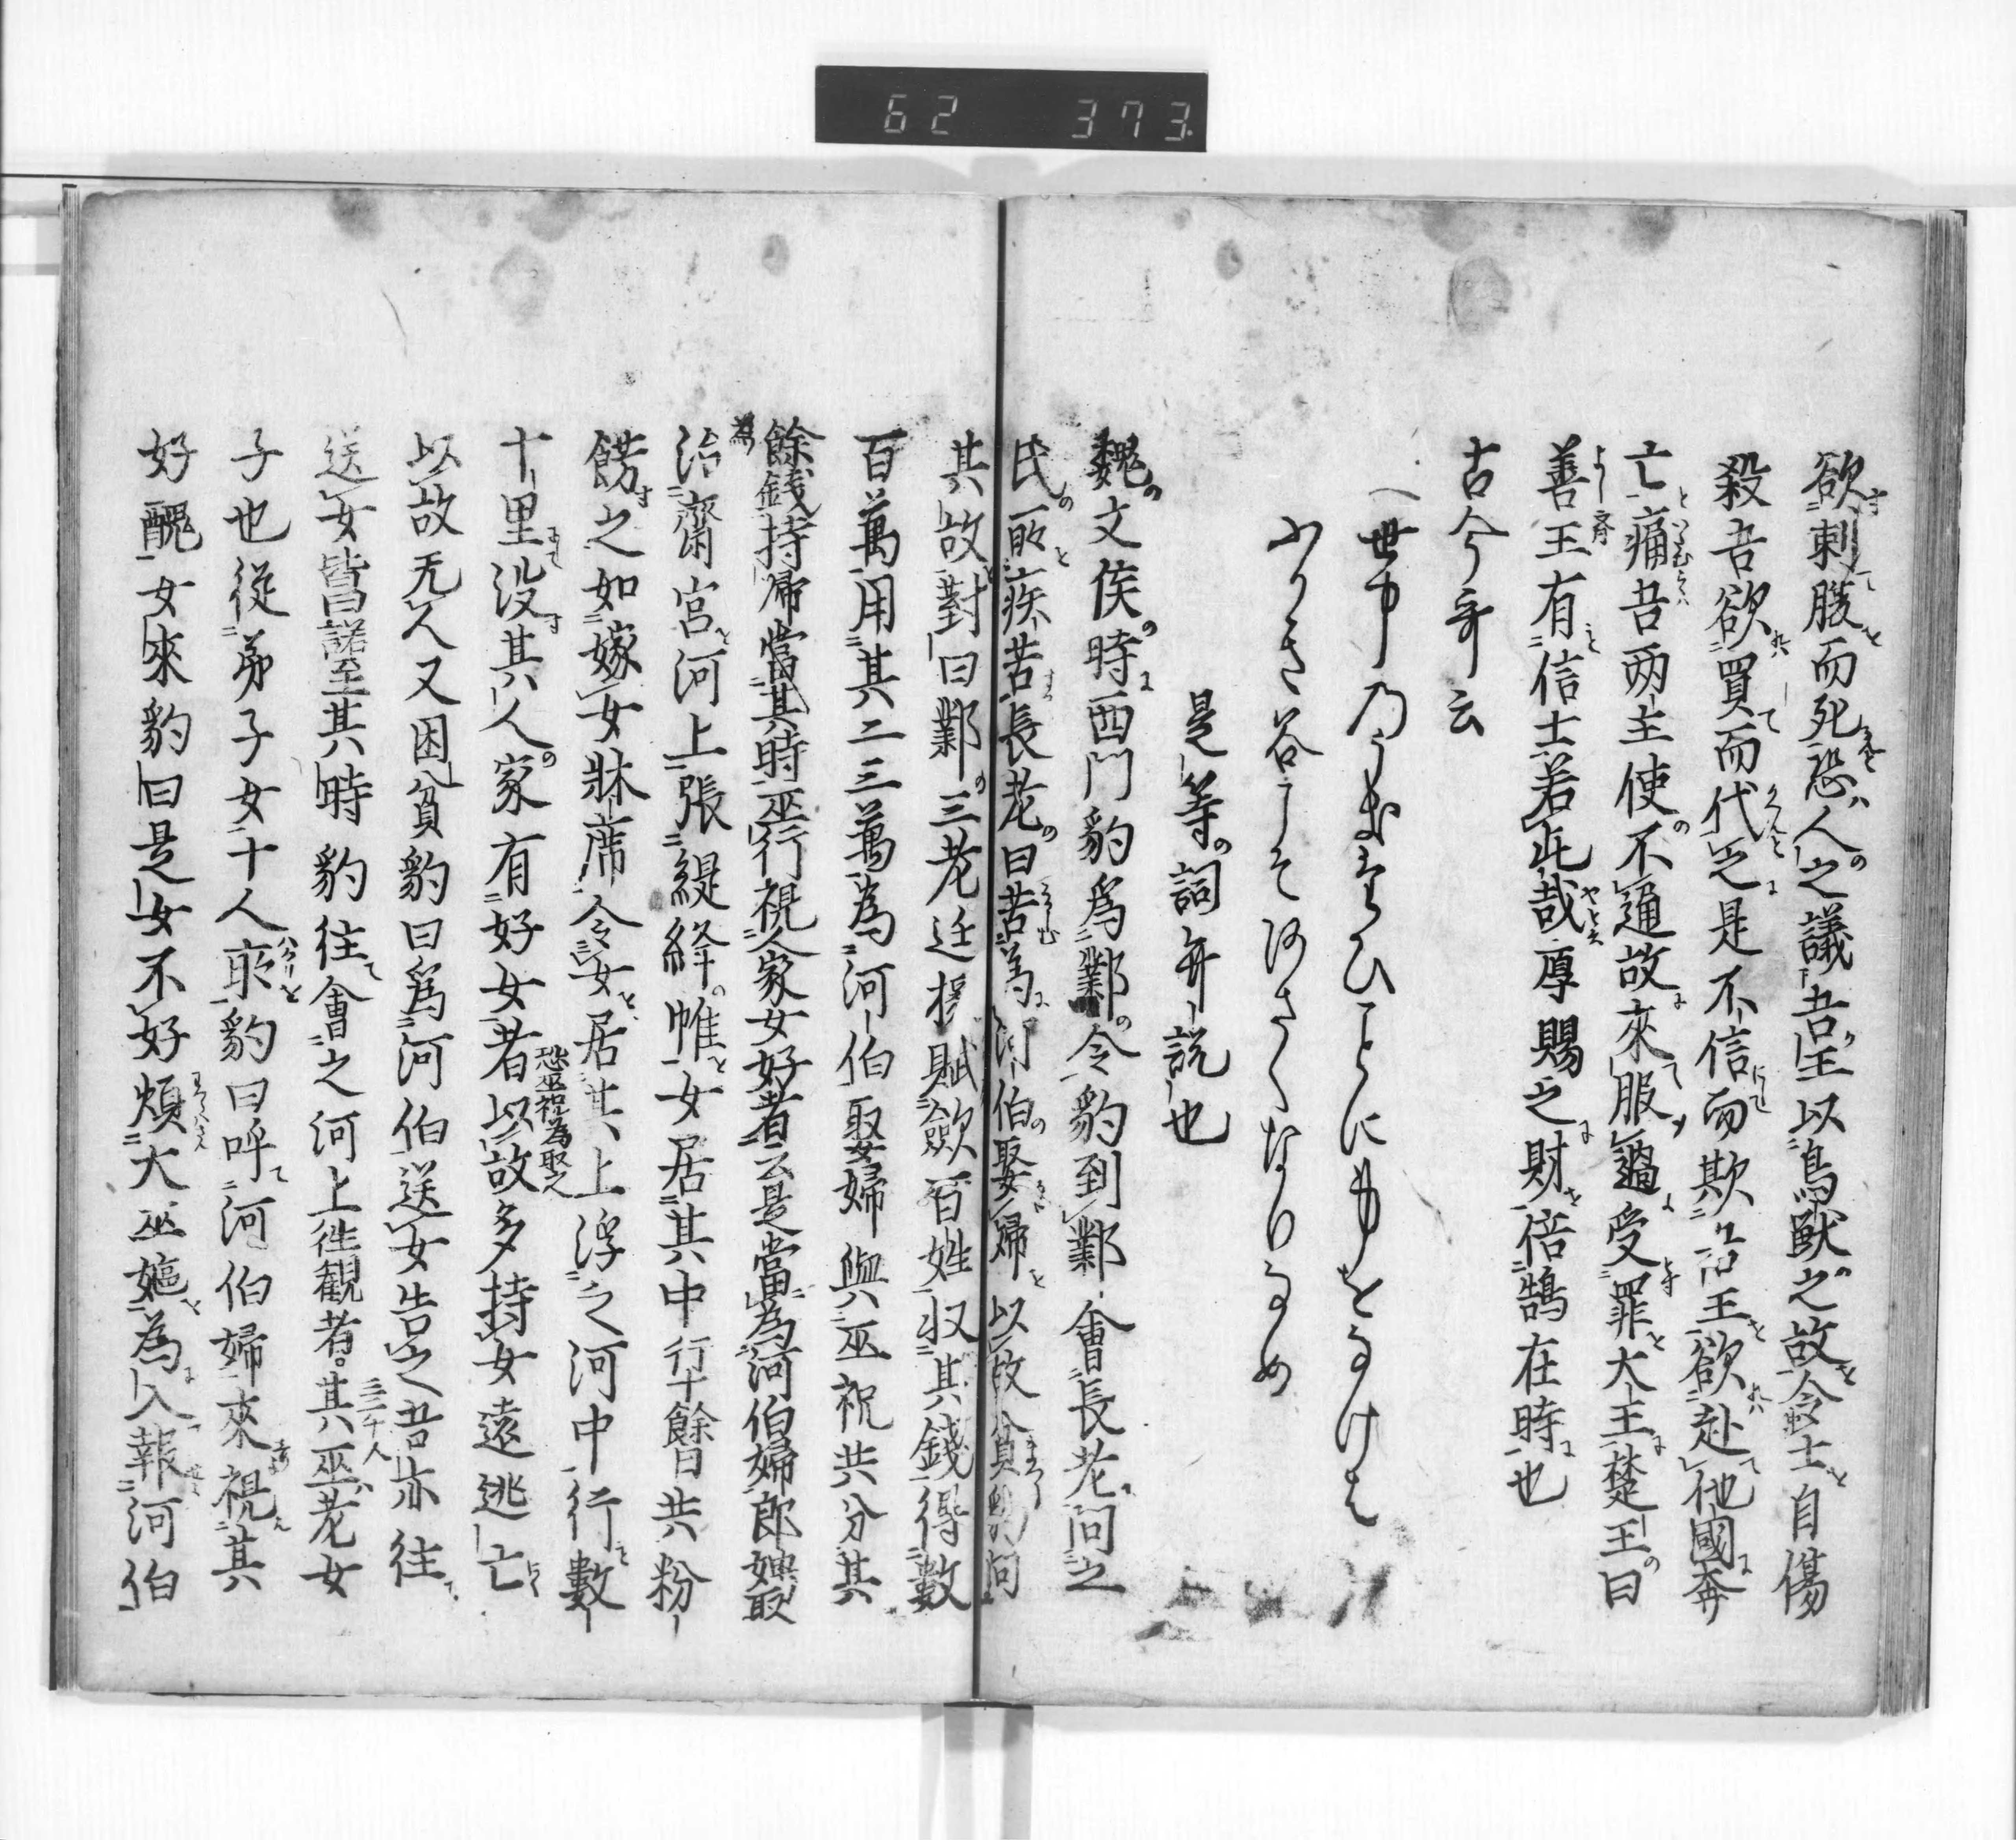 62 373
欲刺腹而死恐人之議吾王以鳥獣之故令士自傷
殺吾欲買而代之是不信而欺吾王欲赴他國奔
亡痛吾両主使不通故來服過受罪大王楚王曰
善王有信士若此哉厚賜之財倍鵠在時也
古今哥云
世中のうきたひことに身をなけは
ふかき谷こそあさくなりなめ
是等詞弁説也
魏文侯時西門豹為鄴令豹到鄴會長老問之
民所疾苦長老曰苦為河伯娶婦以故貧豹問
其故對曰鄴三老廷掾賦歛百姓収其錢得數
百萬用其二三萬為河伯娶婦與巫祝共分其
餘銭持帰當其時巫行視人家女好者云是當為河伯婦郎娉取
為治齋宮河上張緹絳帷女居其中行十餘日共粉
餝之如嫁女牀席令女居其上浮之河中行數
十里没其人家有好女者恐巫祝為取之以故多持女遠逃亡
以故无人又困貧豹曰為河伯送女告之吾亦往
送女皆曰諾至其時豹往會之河上徃観者三二千人其巫老女
子也従弟子女十人所豹曰呼河伯婦來視其
好醜女來豹曰是女不好煩大巫嫗為入報河伯